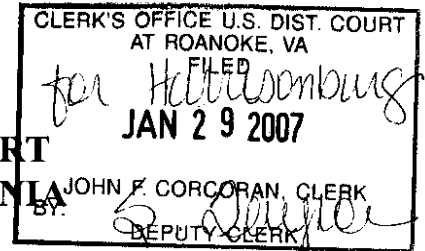 CLERK'S OFFICE U.S. DIST. COURT
AT ROANOKE, VA
FILED
for Harrisonburg
JAN 29 2007
RT
NIA
JOHN F. CORCORAN, CLERK
BY:
DEPUTY CLERK